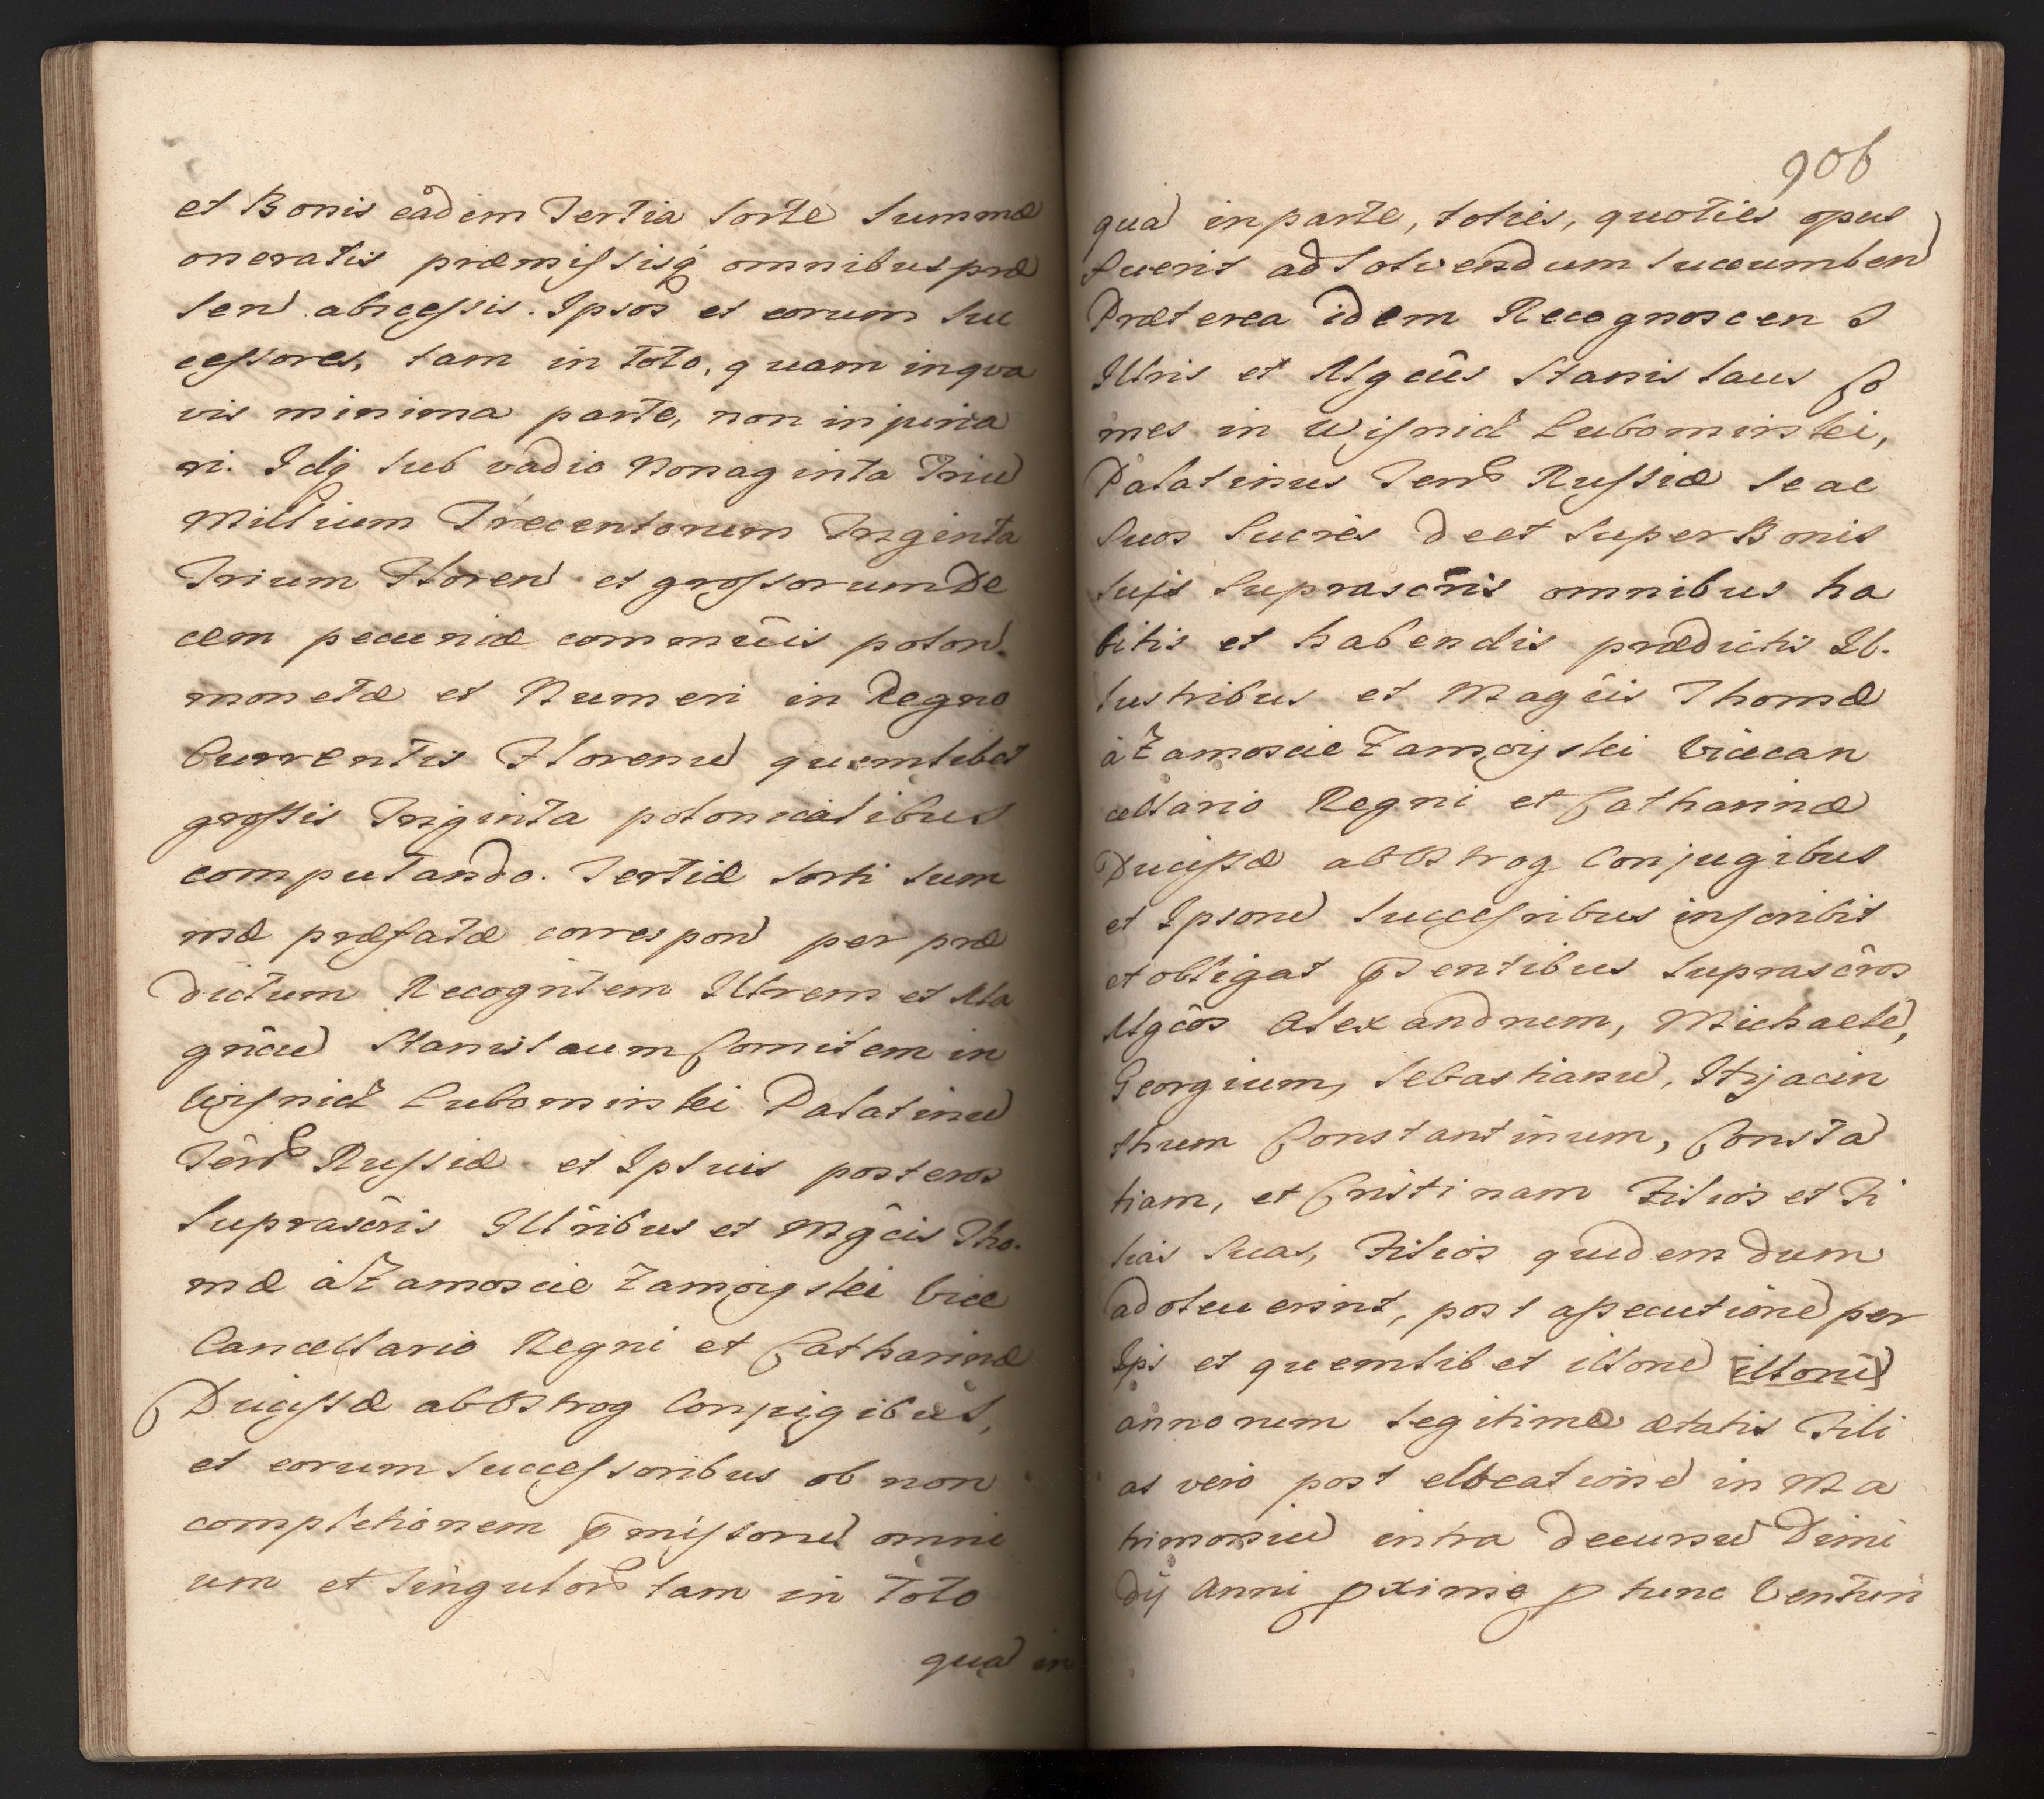 et Bonis eâdem Tertia sorte summæ
oneratis præmissisq omnibus præ
sen abscessis. Ipsos et eorum suc
cessores, tam in toto, quam inqva
vis minima parte, non injuria
ri. Idq sub vadio Nonaginta Triu
Millium Trecentorum Triginta
Trium Floren et grossorum De
cem pecuniæ commūis polon.
monetæ et Numeri in Regno
Currentis Florenu quemlibet
grossis Triginta polonicalibus
computando. Tertiæ sorti sum
mæ præfatæ correspon per præ
dictum Recognītem Illtrem et Ma
gnīcu Stanislaum Comitem in
Wisnicz Lubomirski Palatinu
Terr Russiæ et Ipsuis posteros
suprascr̄is Illr̄ibus et Mg̃cis Tho.
mæ à Zamoscie Zamoyski Vice
Cancellario Regni et Catharinæ
Ducissæ ab Ostrog Conjugibus,
et eorum successoribus ob non
completionem p̄missoru omni
um et singulor tam in toto
qua in
906
qua in parte, toties, quoties opus
fuerit ad solvendum succumben
Præterea idem Recognoscen s
Illris et Mgcūs Stanislaus Co
mes in Wisnicz Lubomirski,
Palatinus Terr Russiæ se ac
suos succrēs de et super Bonis
sujs suprascr̄is omnibus ha
bitis et habendis prædictis Il.
lustribus et Magc̄is Thomæ
à Zamoscie Zamoyski Vicecan
cellario Regni et Catharinæ
Ducissæ ab Ostrog Conjugibus
et Ipsoru successribus inscribit
et obligat p̄sentibus suprascr̄os
Mgc̄os Alexandrum, Michaele,
Georgium, Sebastianu, Hyacin
thum Constantinum, Consta
tiam, et Cristinam Filios et Fi
lias suas, Filios quidem dum
adoleverint, post assecutione per
Ips et quemlibet illoru [illoru]
annorum legitimæ ætatis Fili
as vero post elocatione in Ma
trimoniu intra decursu Dimi
dij Anni p̱xime p̱ tunc Venturi